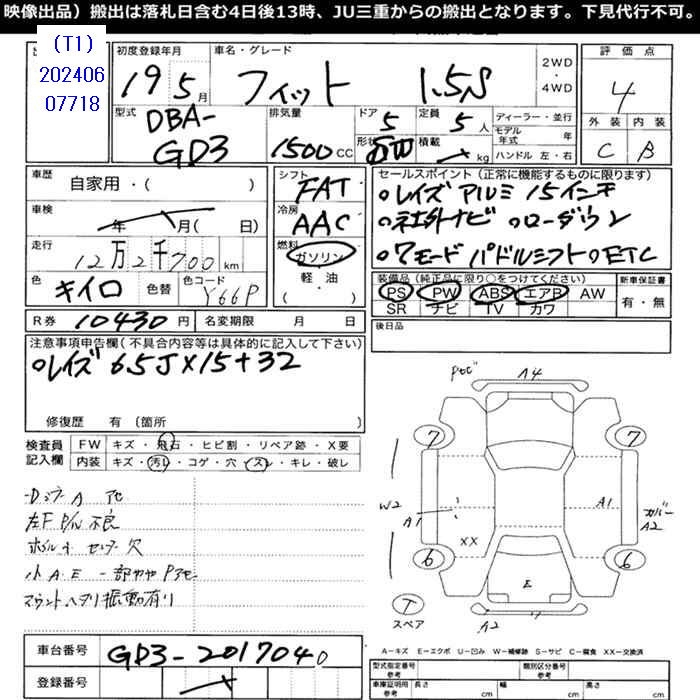 映像出品）搬出は落札日含む4日後13時、JU三重からの搬出となります。下見代行不可。
（T1）
202406
07718
初度登録年月
19 5月
車名・グレード
フィット 1.5S
2WD
・
4WD
評価点
4
外装 内装
C B
型式
DBA-
GD3
排気量
1500cc
ドア
5
形状
SW
定員
5人
積載
kg
ディーラー・並行
モデル年式 年
ハンドル 左・右
車歴
自家用・( )
車検
年 月( 日)
走行
12万2千700km
色
キイロ
色替
色コード
Y66P
シフト
FAT
冷房
AAC
燃料
ガソリン
・
軽・油
( )
セールスポイント（正常に機能するものに限ります）
○レイズ アルミ 15インチ
○社外ナビ ○ローダウン
○7モード パドルシフト○ETC
装備品（純正品に限り○をつけてください）
PS PW ABS エアB AW
SR ナビ TV カワ
新車保証書
有・無
後日品
R券 10430円
名変期限 月 日
注意事項申告欄（不具合内容等は具体的に記入して下さい）
○レイズ 6.5J×15+32
修復歴 有（箇所
検査員
記入欄
FW キズ・飛石・ヒビ割・リペア跡・X要
内装 キズ・汚レ・コゲ・穴・スレ・キレ・破レ
左F P/W 不良
小A.E 一部
マウントヘタリ振動有り
A4
7 7
W2
A1
A1
カバー
A2
XX
6 6
E
T
スペア
A2
A－キズ E－エクボ U－凹み W－補修跡 S－サビ C－腐食 XX－交換済
車台番号 GD3-2017040
登録番号
型式指定番号
参考
類別区分番号
参考
車庫証明用
参考
長さ cm 幅 cm 高さ cm